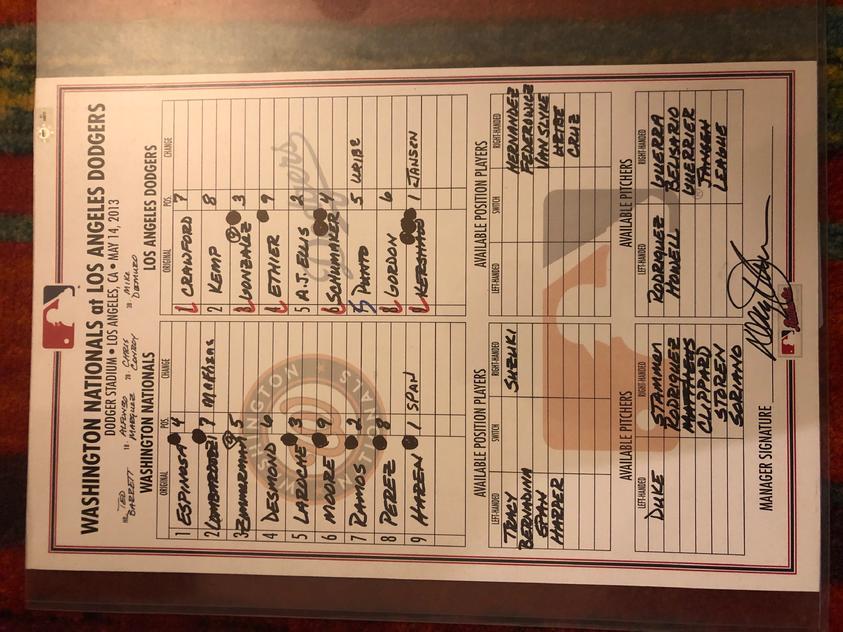 WASHINGTON NATIONALS at LOS ANGELES DODGERS
DODGER STADIUM • LOS ANGELES, CA • MAY 14, 2013
TED BARRETT ALFONSO MARQUEZ CHRIS CONROY MIKE DIMURO
WASHINGTON NATIONALS
ORIGINAL POS. CHANGE
1 ESPINOSA 4
2 LOMBARDOZZI 7
3 ZIMMERMAN 5
4 DESMOND 6
5 LAROCHE 3
6 MOORE 9
7 RAMOS 2
8 PEREZ 8
9 HAREN 1 SPAN
LOS ANGELES DODGERS
ORIGINAL POS. CHANGE
1 CRAWFORD 7
2 KEMP 8
3 GONZALEZ 3
4 ETHIER 9
5 A.J. ELLIS 2
6 SCHUMAKER 4
7 PUNTO 5 URIBE
8 GORDON 6
9 KERSHAW 1 JANSEN
Dodgers
WASHINGTON NATIONALS
AVAILABLE POSITION PLAYERS
LEFT-HANDED SWITCH RIGHT-HANDED
TRACY SUZUKI
BERNADINA
SPAN
HARPER
AVAILABLE POSITION PLAYERS
LEFT-HANDED SWITCH RIGHT-HANDED
HERNANDEZ
FEDEROWICZ
VAN SLYKE
URIBE
CRUZ
AVAILABLE PITCHERS
LEFT-HANDED RIGHT-HANDED
DUKE STAMMEN
RODRIGUEZ
MATTHEUS
CLIPPARD
STOREN
SORIANO
AVAILABLE PITCHERS
LEFT-HANDED RIGHT-HANDED
RODRIGUEZ GUERRA
HOWELL BELISARIO
GUERRIER
JANSEN
LEAGUE
MANAGER SIGNATURE